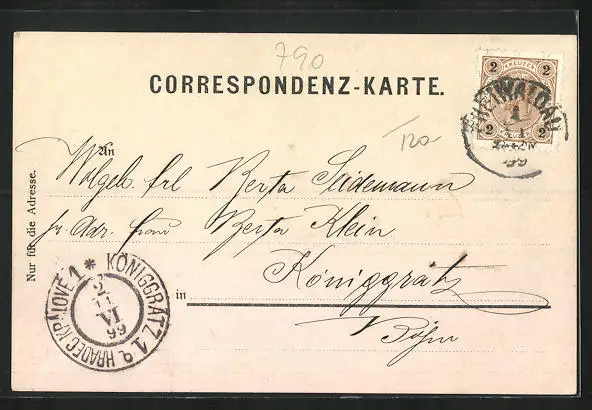 790
CORRESPONDENZ-KARTE.
2 KREUZER 2
2 KREUZER 2
FREIWALDAU
1
99
120
An
Wolgeb. frl Berta Seidemann
pr. Adr. Frau Berta Klein
Königgrätz
in
Böhm
Nur für die Adresse.
KÖNIGGRÄTZ 1 * HRADEC KRÁLOVÉ 1
2
VI
99